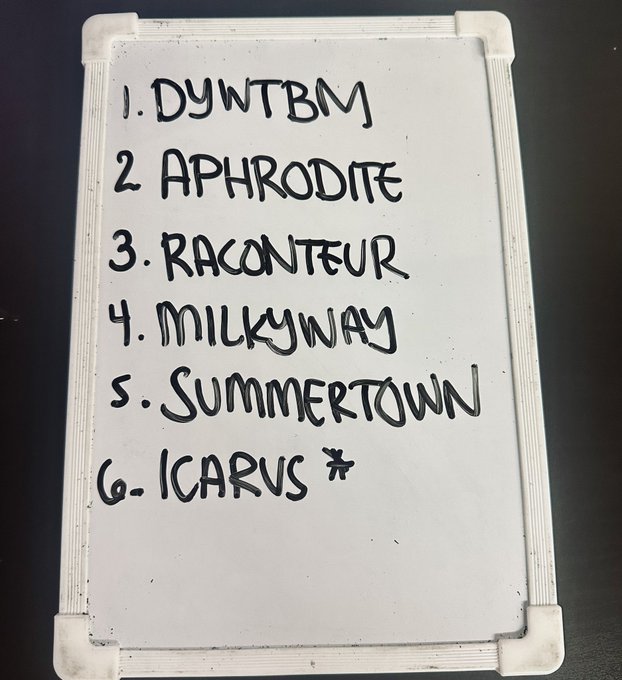 1. DYWTBM
2 APHRODITE
3. RACONTEUR
4. MILKYWAY
5. SUMMERTOWN
6. ICARUS *